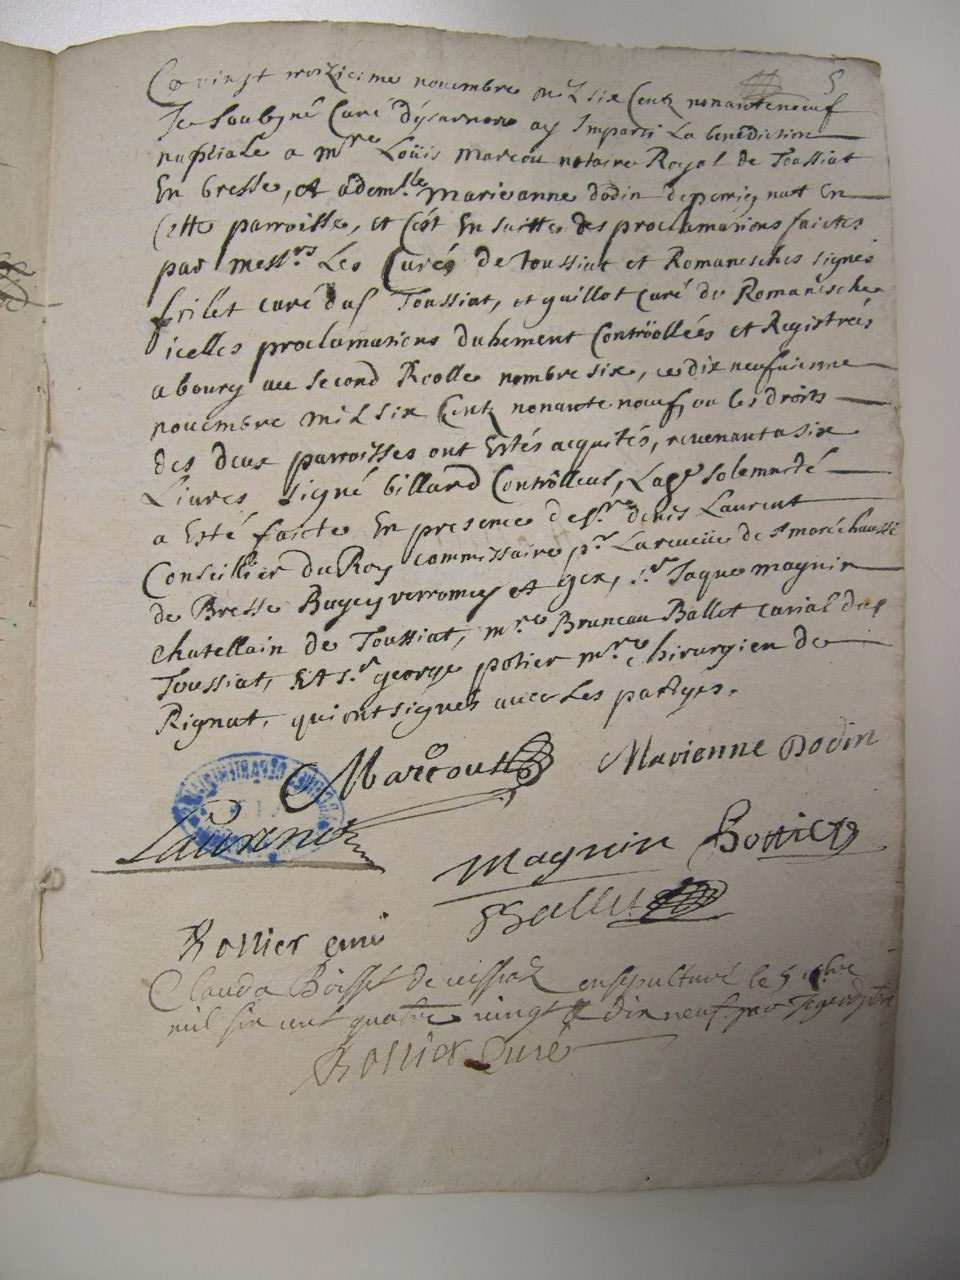 5
Ce vingt troiziéme novembre mil six Centz nonante neuf
Je Soubsné Curé d'ysarnore ay Imparti La benediction
nuptiale a mtre Loüis Marcou notaire Royal de Toussiat
En bresse, et a demlle Marieanne dodin natt En
Cette parroisse, et C'est En suitte des proclamations faictes
par messrs Les Curés de toussiat et Romanesches signés
frilet curé dud Toussiat, et guillot curé de Romanesche
icelles proclamations duhement Contröollées et Registrées
a bourg au second Reolle nombre six, ce dix neufvieme
novembre mil six Centz nonante neuf, ou les droits
des deux parroisses ont Estés acquités, revenant a six
Livres signé billard Contrölleur, Lade solemnité
a Esté faicte En presence de sr denis Laurent
Conseillier du Roy commissaire pr La reveüe de La maréchaussé
de Bresse Bugey verromey et gex, sr Jaque magnin
chatellain de Toussiat, mre Bruneau Ballet curial dud
Toussiat, Et sr george potier mre chirurgien de
Rignat, qui ont signés avec Les partyes.
Marcout Marienne Dodin
Laurent
Magnin Pottier
Ballet
Rollier curé
Clauda Boisset de ensepulturé le 5 xbre
mil six cent quatre vingt dix neuf
Rollier Curé